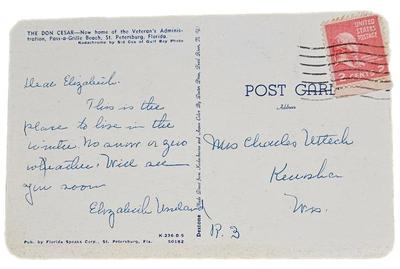 THE DON CESAR—Now home of the Veteran's Adminis-
tration, Pass-a-Grille Beach, St. Petersburg, Florida.
Kodachrome by Sid Cox of Gulf Bay Photo
Dear Elizabeth.
This is the
place to live in the
winter. No snow or zero
weather. Will see
you soon
Elizabeth
K-236 D S
Pub. by Florida Speaks Corp., St. Petersburg, Fla. 50182
Dextone
POST CARD
Address
UNITED STATES
POSTAGE
2 CENTS 2
Mrs Charles Uttech
Kenosha
Wis.
R. 3